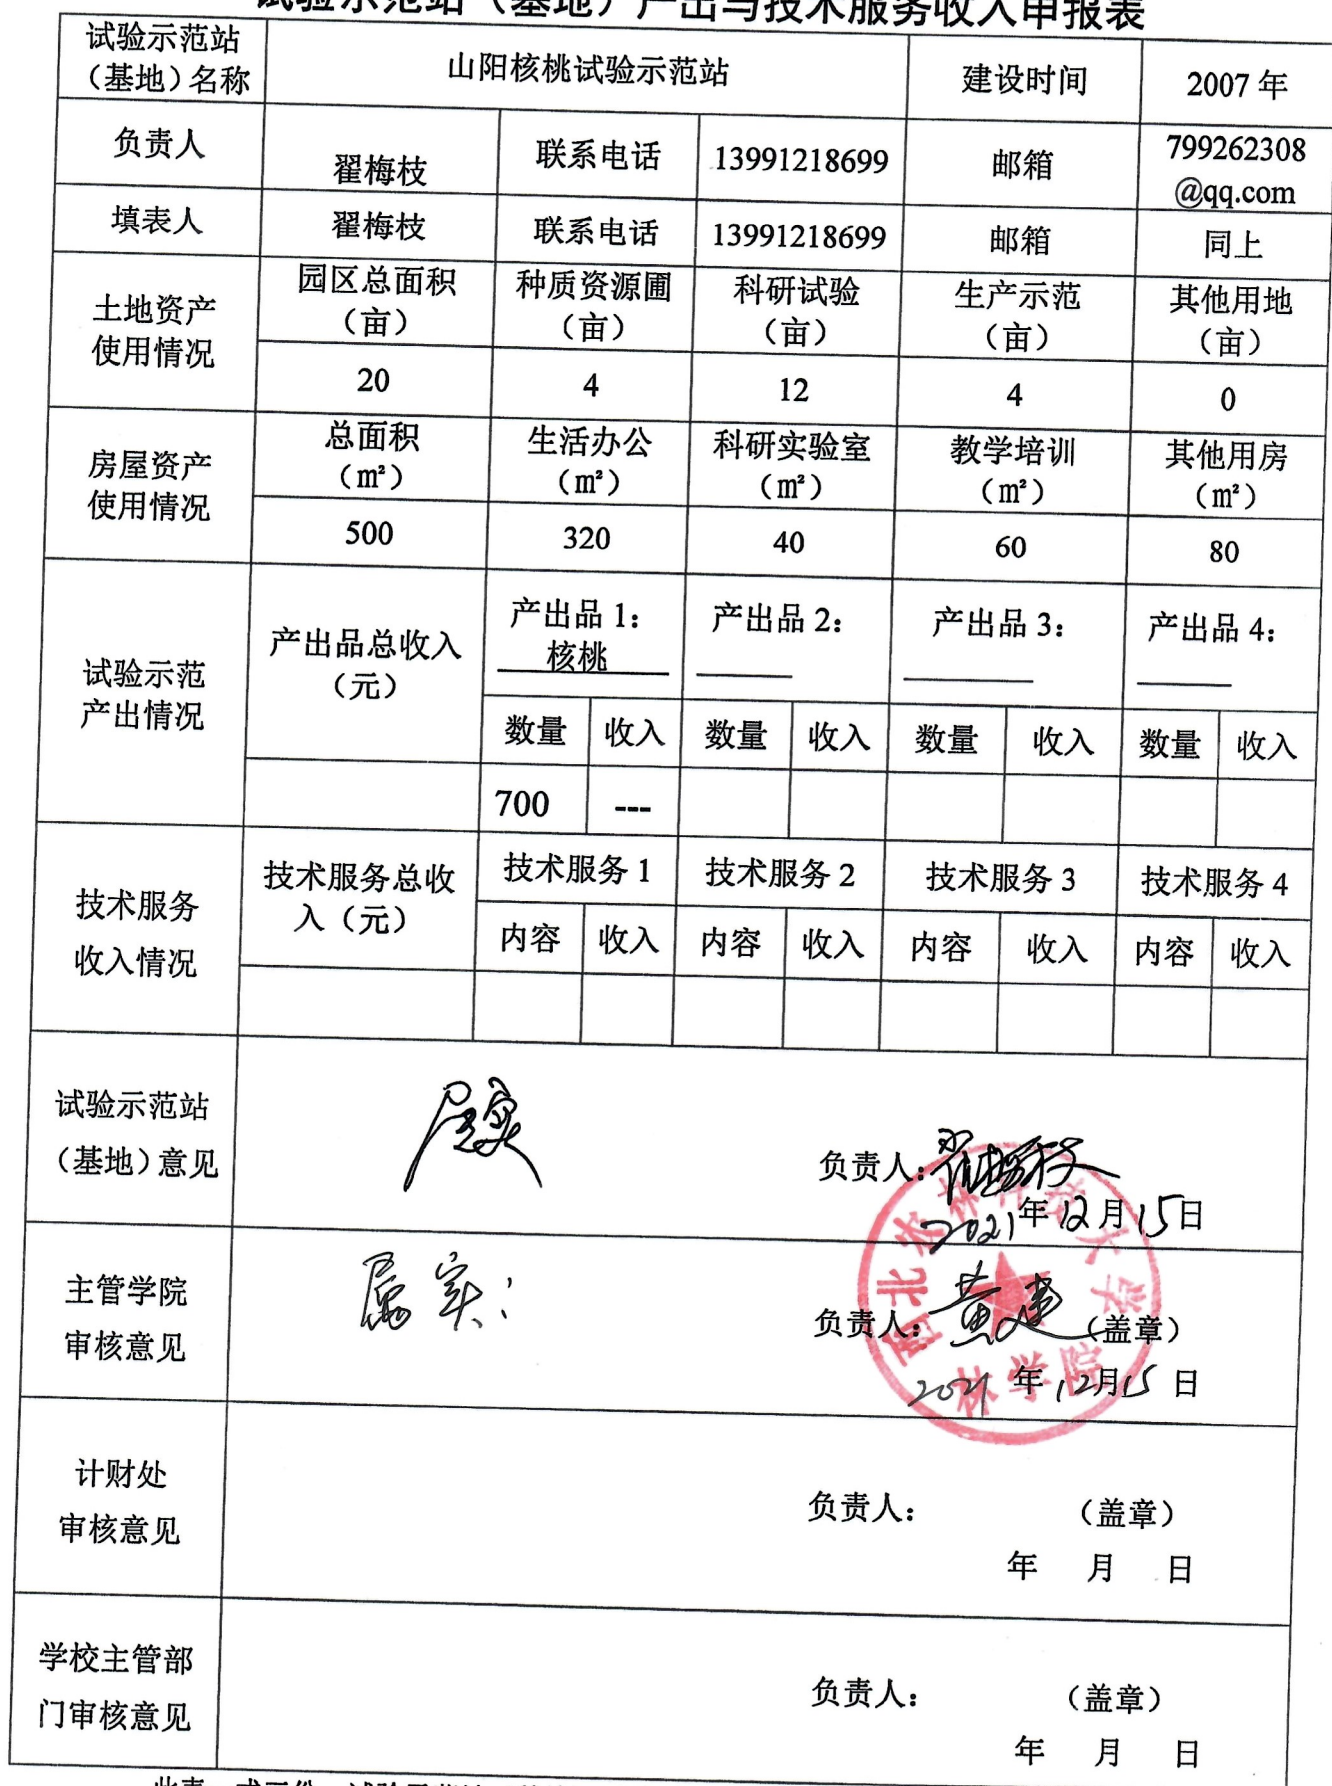 试验示范站（基地）产出与技术服务收入申报表
试验示范站
（基地）名称
山阳核桃试验示范站
建设时间
2007 年
负责人
翟梅枝
联系电话
13991218699
邮箱
799262308
@qq.com
填表人
翟梅枝
联系电话
13991218699
邮箱
同上
土地资产
使用情况
园区总面积
（亩）
种质资源圃
（亩）
科研试验
（亩）
生产示范
（亩）
其他用地
（亩）
20
4
12
4
0
房屋资产
使用情况
总面积
（㎡）
生活办公
（㎡）
科研实验室
（㎡）
教学培训
（㎡）
其他用房
（㎡）
500
320
40
60
80
试验示范
产出情况
产出品总收入
（元）
产出品 1：
核桃
产出品 2：
产出品 3：
产出品 4：
数量 收入 数量 收入 数量 收入 数量 收入
700 ---
技术服务
收入情况
技术服务总收
入（元）
技术服务 1
技术服务 2
技术服务 3
技术服务 4
内容 收入 内容 收入 内容 收入 内容 收入
试验示范站
（基地）意见
属实
负责人：翟梅枝
2021年12月15日
主管学院
审核意见
属实：
负责人：黄建（盖章）
2021年12月15日
西北农林科技大学
林学院
计财处
审核意见
负责人： （盖章）
年 月 日
学校主管部
门审核意见
负责人： （盖章）
年 月 日